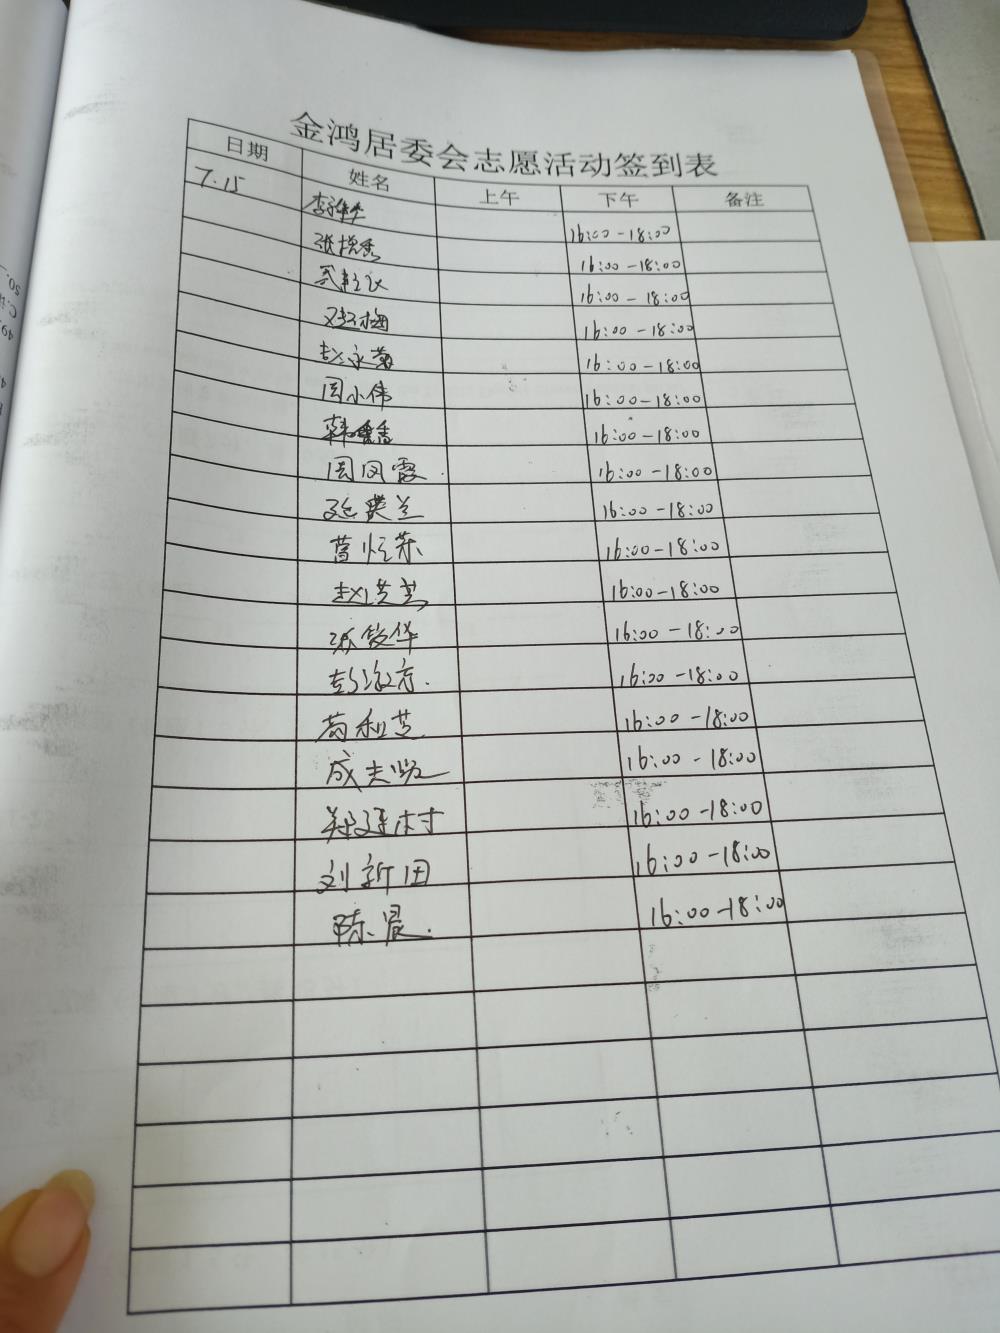 金鸿居委会志愿活动签到表
日期 姓名 上午 下午 备注
7.15 16:00-18:00
张悦秀 16:00-18:00
16:00-18:00
赵梅 16:00-18:00
赵永菊 16:00-18:00
周小伟 16:00-18:00
韩 16:00-18:00
周凤霞 16:00-18:00
兰 16:00-18:00
葛恒荣 16:00-18:00
赵芝 16:00-18:00
华 16:00-18:00
彭淑 16:00-18:00
芮和芝 16:00-18:00
成 16:00-18:00
郑建村 16:00-18:00
刘新田 16:00-18:00
陈晨 16:00-18:00